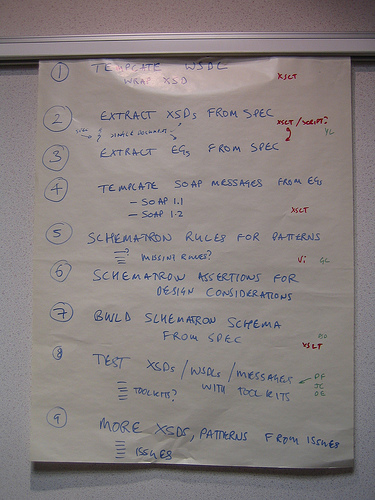 1 TEMPLATE WSDL
WRAP XSD XSLT
2 EXTRACT XSDs FROM SPEC XSLT/SCRIPT?
SINGLE DOCUMENT YL
3 EXTRACT EGs FROM SPEC
4 TEMPLATE SOAP MESSAGES FROM EGs
- SOAP 1.1
- SOAP 1.2 XSLT
5 SCHEMATRON RULES FOR PATTERNS
MISSING RULES? Vi GC
6 SCHEMATRON ASSERTIONS FOR
DESIGN CONSIDERATIONS
7 BUILD SCHEMATRON SCHEMA
FROM SPEC XSLT
8 TEST XSDs/WSDLs/MESSAGES
WITH TOOLKITS
TOOLKITS?
9 MORE XSDs, PATTERNS FROM ISSUES
ISSUES